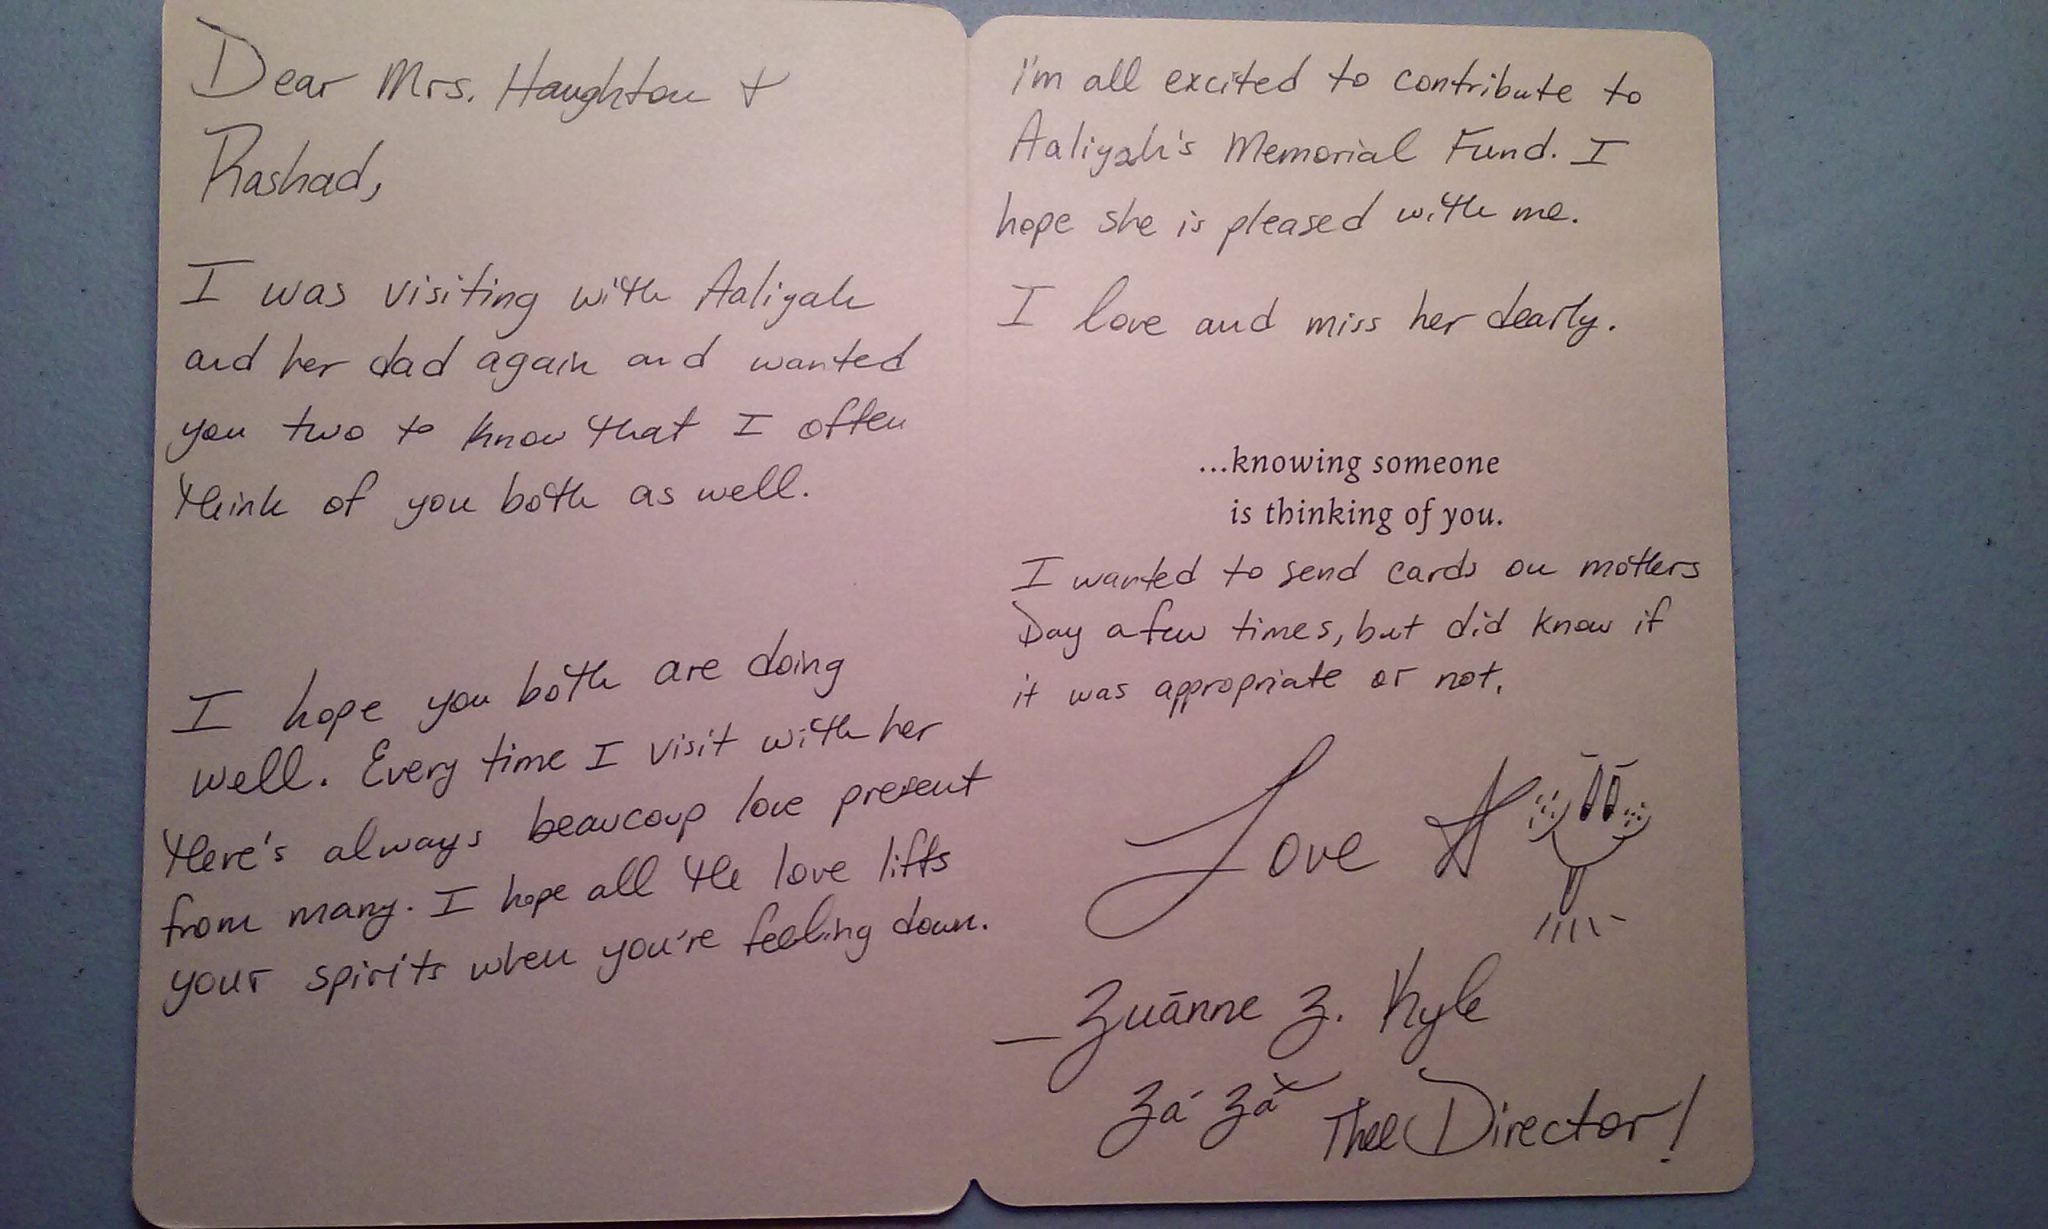 Dear Mrs. Haughton +
Rashad,
I was visiting with Aaliyah
and her dad again and wanted
you two to know that I often
think of you both as well.
I hope you both are doing
well. Every time I visit with her
there's always beaucoup love present
from many. I hope all the love lifts
your spirits when you're feeling down.
I'm all excited to contribute to
Aaliyah's Memorial Fund. I
hope she is pleased with me.
I love and miss her dearly.
...knowing someone
is thinking of you.
I wanted to send cards on mothers
Day a few times, but did know if
it was appropriate or not.
Love
— Zuānne Z. Kyle
Zá Zā Thee Director!